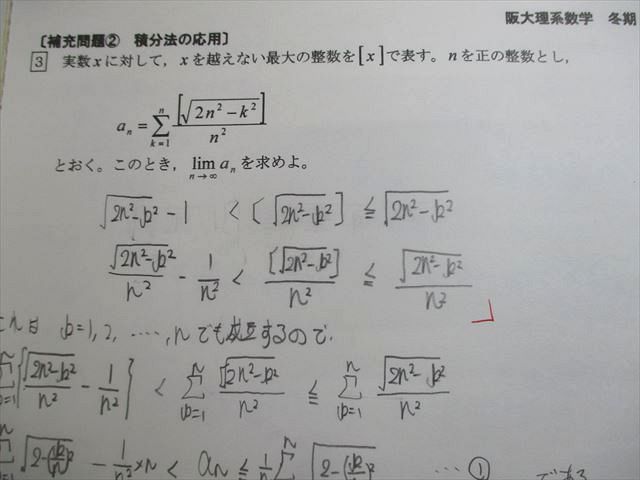 阪大理系数学 冬期
〔補充問題② 積分法の応用〕
3 実数xに対して，xを越えない最大の整数を[x]で表す。nを正の整数とし，
a_n = Σ_{k=1}^{n} [√(2n²−k²)] / n²
とおく。このとき，lim_{n→∞} a_n を求めよ。
√(2n²−k²) − 1 < [√(2n²−k²)] ≦ √(2n²−k²)
√(2n²−k²)/n² − 1/n² < [√(2n²−k²)]/n² ≦ √(2n²−k²)/n²
これは k=1, 2, ……, n でも成立するので、
Σ_{k=1}^{n} {√(2n²−k²)/n² − 1/n²} < Σ_{k=1}^{n} [√(2n²−k²)]/n² ≦ Σ_{k=1}^{n} √(2n²−k²)/n²
Σ^{n} √(2−(k/n)²) − 1/n² ×n < a_n ≦ 1/n Σ^{n} √(2−(k/n)²) … ① である